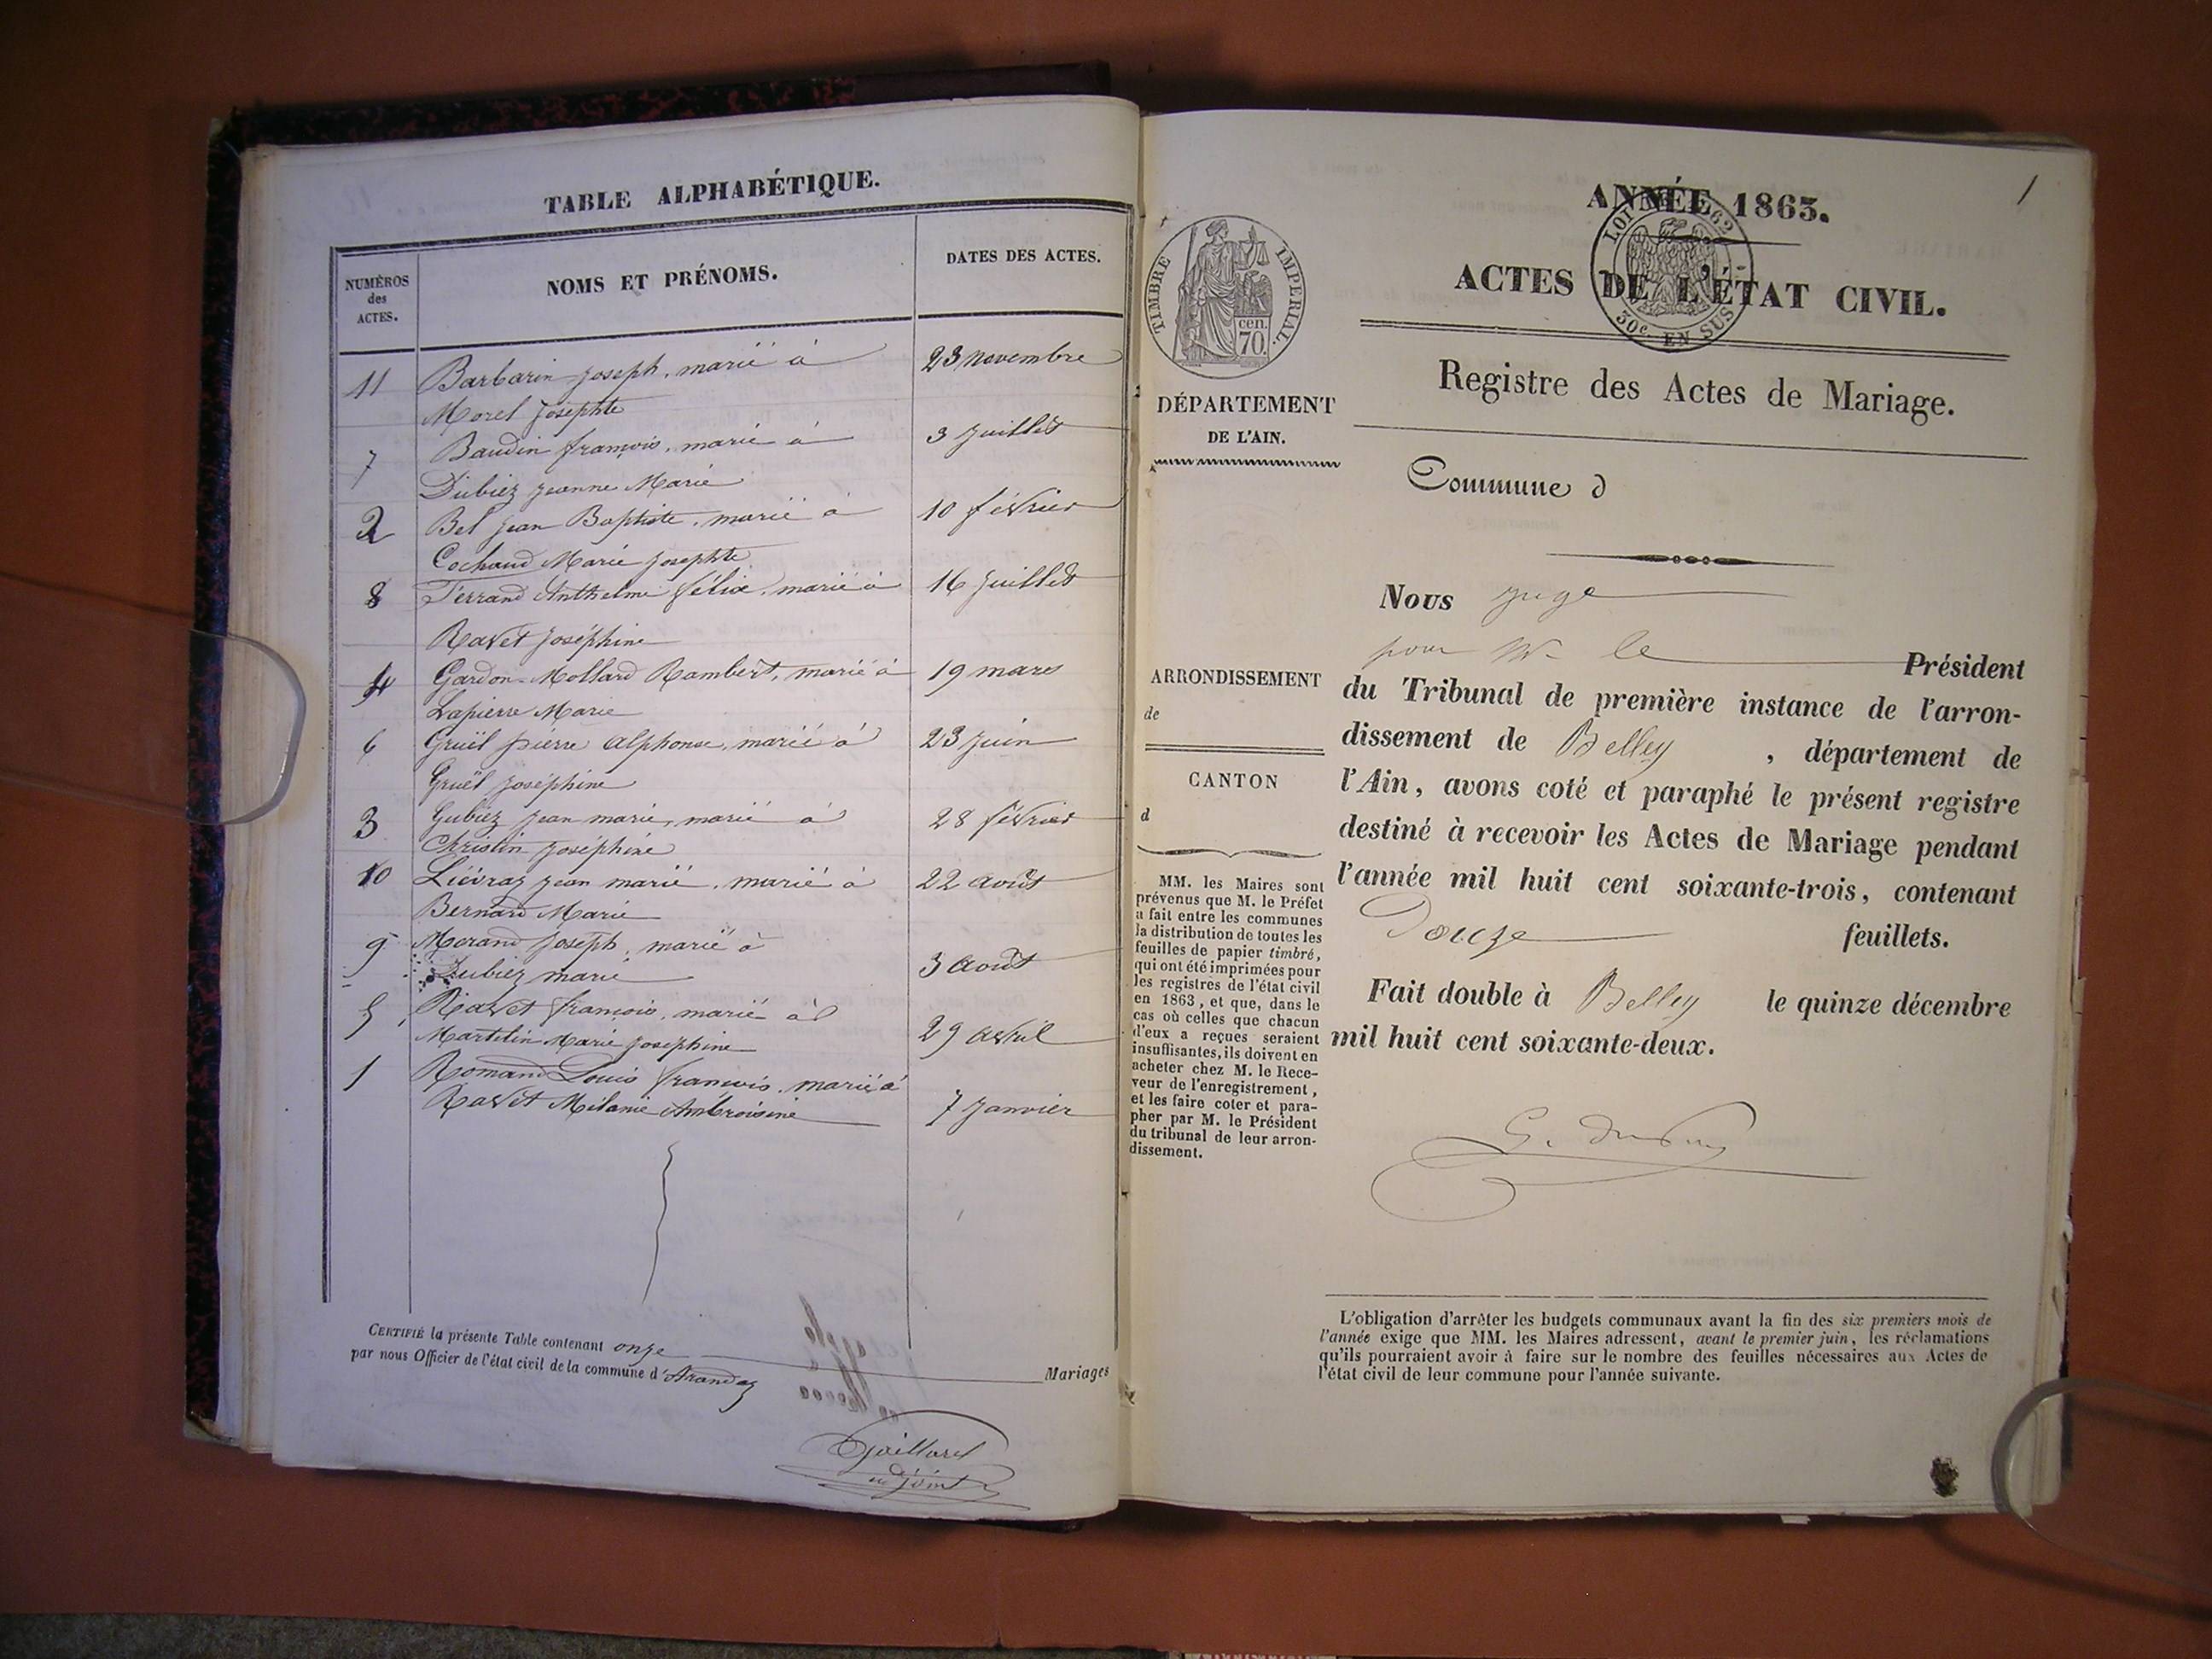 TABLE ALPHABÉTIQUE.
NUMÉROS
des
ACTES.
NOMS ET PRÉNOMS.
DATES DES ACTES.
11 Barbarin Joseph, marié à 23 novembre
Morel Josephte
7 Baudin françois, marié à 3 Juillet
Dubiez Jeanne Marie
2 Bel Jean Baptiste, marié à 10 février
Cochaud Marie Josephte
8 Ferrand Anthelme félix, marié à 16 Juillet
Ravet Joséphine
4 Gardon-Mollard Rambert, marié à 19 mars
Lapierre Marie
6 Gruël pierre alphonse, marié à 23 Juin
Gruël Joséphine
3 Gubiez Jean marie, marié à 28 février
Christin Joséphine
10 Liévraz Jean marie, marié à 22 août
Bernard Marie
9 Morand Joseph, marié à
Dubiez marie 3 août
5 Ravet françois, marié à
Martelin Marie Josephine 29 avril
1 Romand Louis françois, marié à
Ravet Mélanie Ambroisine 7 Janvier
CERTIFIÉ la présente Table contenant onze Mariages
par nous Officier de l'état civil de la commune d'Arandas
Gaillard
adjoint
1
ANNÉE 1863.
LOI DE 1862
30c. EN SUS
ACTES DE L'ÉTAT CIVIL.
TIMBRE IMPERIAL.
cen.
70.
Registre des Actes de Mariage.
DÉPARTEMENT
DE L'AIN.
Commune d
Nous juge
pour Mr le Président
ARRONDISSEMENT
de
du Tribunal de première instance de l'arron-
dissement de Belley, département de
CANTON
d
l'Ain, avons coté et paraphé le présent registre
destiné à recevoir les Actes de Mariage pendant
l'année mil huit cent soixante-trois, contenant
Douze feuillets.
Fait double à Belley le quinze décembre
mil huit cent soixante-deux.
MM. les Maires sont
prévenus que M. le Préfet
a fait entre les communes
la distribution de toutes les
feuilles de papier timbré,
qui ont été imprimées pour
les registres de l'état civil
en 1863, et que, dans le
cas où celles que chacun
d'eux a reçues seraient
insuffisantes, ils doivent en
acheter chez M. le Rece-
veur de l'enregistrement,
et les faire coter et para-
pher par M. le Président
du tribunal de leur arron-
dissement.
L'obligation d'arrêter les budgets communaux avant la fin des six premiers mois de
l'année exige que MM. les Maires adressent, avant le premier juin, les réclamations
qu'ils pourraient avoir à faire sur le nombre des feuilles nécessaires aux Actes de
l'état civil de leur commune pour l'année suivante.